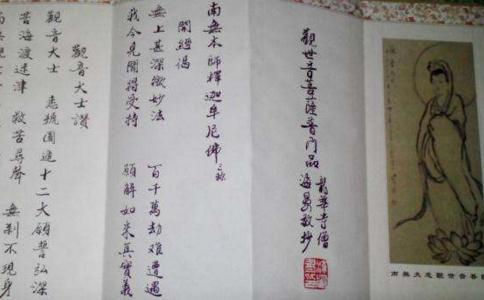 南無大悲觀世音菩
觀世音菩薩普門品
龍華寺僧
海 敬抄
南無本師釋迦牟尼佛 三稱
開經偈
無上甚深微妙法 百千萬劫難遭遇
我今見聞得受持 願解如來真實義
觀音大士讚
觀音大士 悉號圓通 十二大願誓弘深
苦海渡迷津 救苦尋聲 無刹不現身